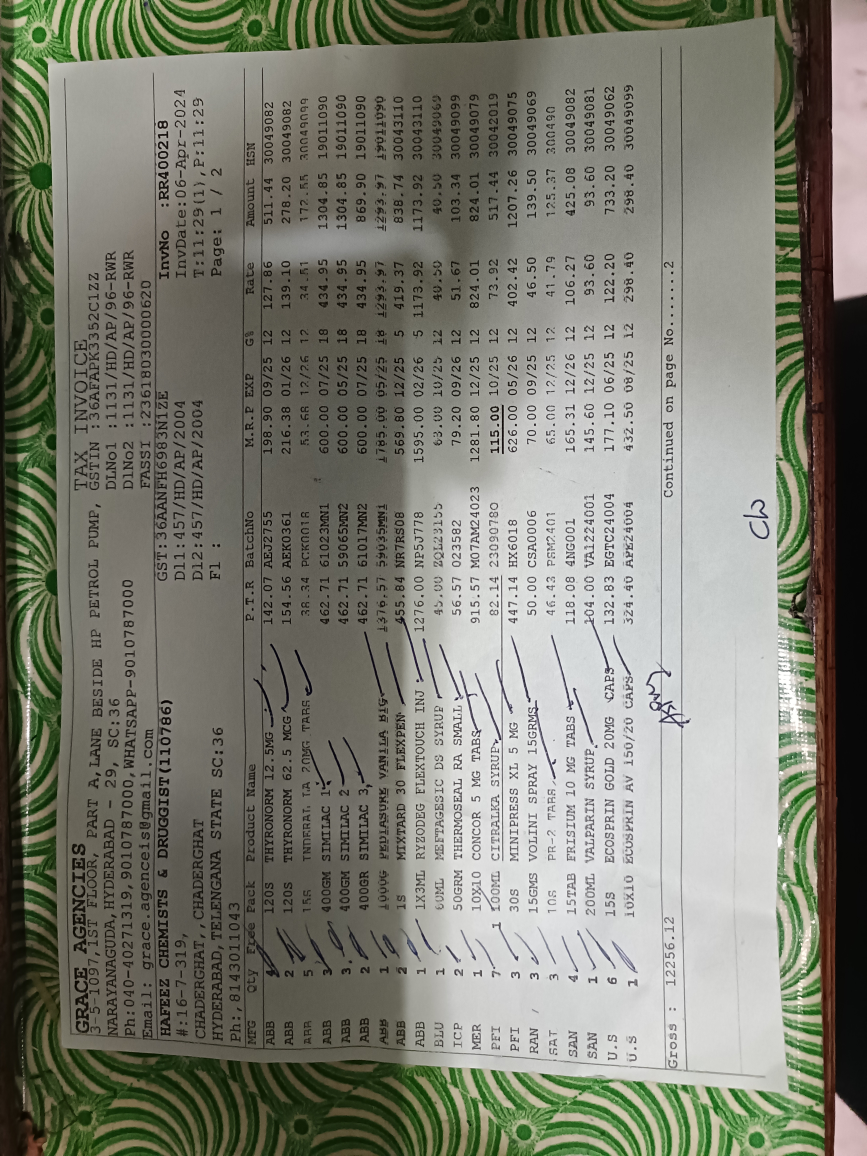 GRACE AGENCIES
3-5-1097,1ST FLOOR, PART A,LANE BESIDE HP PETROL PUMP,
NARAYANAGUDA,HYDERABAD - 29, SC:36
Ph:040-40271319,9010787000,WHATSAPP-9010787000
Email: grace.agenceis@gmail.com
TAX INVOICE
GSTIN :36AFAPK3352C1ZZ
DLNo1 :1131/HD/AP/96-RWR
DlNo2 :1131/HD/AP/96-RWR
FASSI :23618030000620
HAFEEZ CHEMISTS & DRUGGIST(110786)
#:16-7-319,
CHADERGHAT,,CHADERGHAT
HYDERABAD,TELENGANA STATE SC:36
Ph:,8143011043
GST:36AANFH6983N1ZE
Dl1:457/HD/AP/2004
Dl2:457/HD/AP/2004
Fl :
InvNo :RR400218
InvDate:06-Apr-2024
T:11:29(1),P:11:29
Page: 1 / 2
MFG Qty Free Pack Product Name P.T.R BatchNo M.R.P EXP G% Rate Amount HSN
ABB 4 120S THYRONORM 12.5MG 142.07 AEJ2755 198.90 09/25 12 127.86 511.44 30049082
ABB 2 120S THYRONORM 62.5 MCG 154.56 AEK0361 216.38 01/26 12 139.10 278.20 30049082
ABB 5 15S INDERAL LA 20MG TABS 38.34 PCK0018 53.68 12/26 12 34.51 172.55 30049099
ABB 3 400GM SIMILAC 1 462.71 61023MN1 600.00 07/25 18 434.95 1304.85 19011090
ABB 3 400GM SIMILAC 2 462.71 59065MN2 600.00 05/25 18 434.95 1304.85 19011090
ABB 2 400GR SIMILAC 3 462.71 61017MN2 600.00 07/25 18 434.95 869.90 19011090
ABB 1 1000G PEDIASURE VANILA BIG 1376.57 59035MN1 1785.00 05/25 18 1293.97 1293.97 19011090
ABB 2 1S MIXTARD 30 FLEXPEN 455.84 NR7RS08 569.80 12/25 5 419.37 838.74 30043110
ABB 1 1X3ML RYZODEG FLEXTOUCH INJ 1276.00 NP5J778 1595.00 02/26 5 1173.92 1173.92 30043110
BLU 1 60ML MEFTAGESIC DS SYRUP 45.00 63.00 10/25 12 40.50 40.50 30049069
ICP 2 50GRM THERMOSEAL RA SMALL 56.57 023582 79.20 09/26 12 51.67 103.34 30049099
MER 1 10X10 CONCOR 5 MG TABS 915.57 M07AM24023 1281.80 12/25 12 824.01 824.01 30049079
PFI 7 1 100ML CITRALKA SYRUP 82.14 23090780 115.00 10/25 12 73.92 517.44 30042019
PFI 3 30S MINIPRESS XL 5 MG 447.14 HX6018 626.00 05/26 12 402.42 1207.26 30049075
RAN 3 15GMS VOLINI SPRAY 15GRMS 50.00 CSA0006 70.00 09/25 12 46.50 139.50 30049069
SAT 3 10S PR-2 TABS 46.43 PSM2401 65.00 12/25 12 41.79 125.37 300490
SAN 4 15TAB FRISIUM 10 MG TABS 118.08 4NG001 165.31 12/26 12 106.27 425.08 30049082
SAN 1 200ML VALPARIN SYRUP 104.00 VA1224001 145.60 12/25 12 93.60 93.60 30049081
U.S 6 15S ECOSPRIN GOLD 20MG CAPS 132.83 EGTC24004 177.10 06/25 12 122.20 733.20 30049062
U.S 1 10X10 ECOSPRIN AV 150/20 CAPS 324.40 APE24004 432.50 08/25 12 298.40 298.40 30049099
Gross : 12256.12 Continued on page No.......2